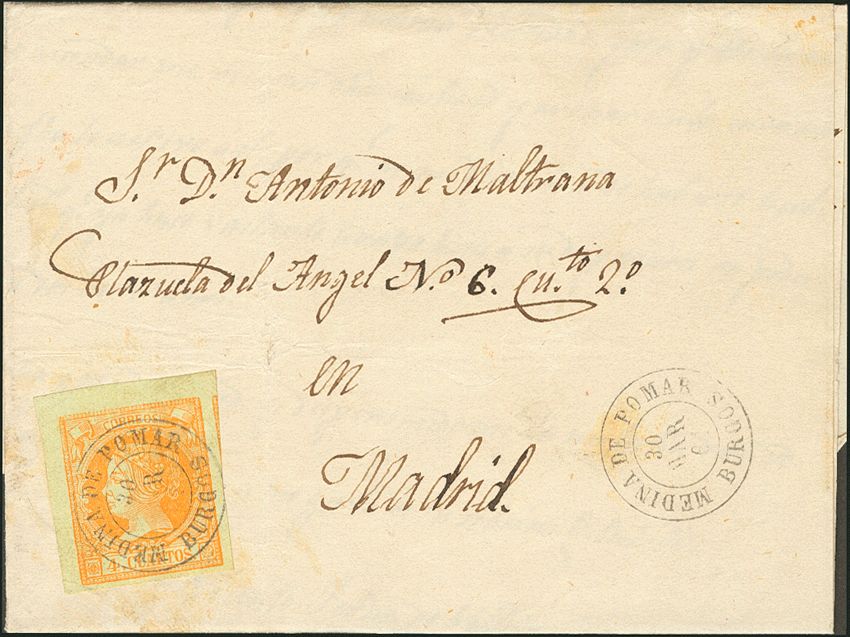 S.r D.n Antonio de Maltrana
Plazuela del Angel N.o 6. Cu.to 2.o
en
Madrid.
CORREOS
MEDINA DE POMAR BURGOS
30
4 CUARTOS
MEDINA DE POMAR BURGOS
30
MAR